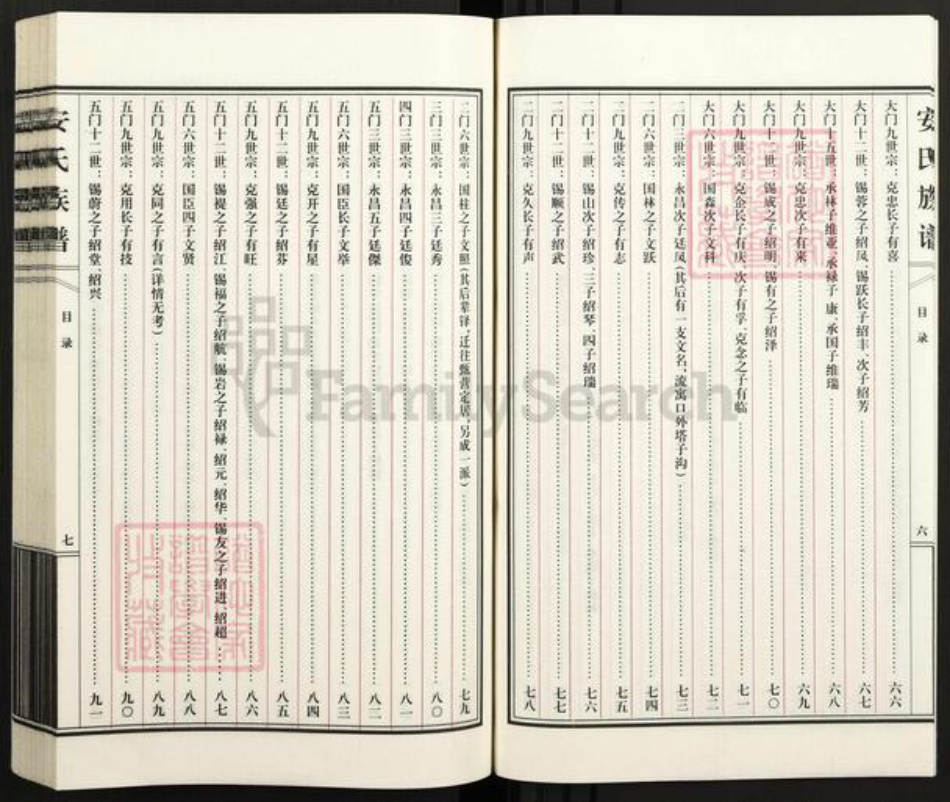 安氏族谱
目录
六
大门九世宗：克忠长子有喜……六六
大门十二世：锡蓉之子绍凤、锡跃长子绍丰、次子绍芳……六七
大门十五世：承林子维亚、承禄子 康、承国子维瑞……六八
大门九世宗：克忠次子有来……六九
大门十二世：锡成之子绍明、锡有之子绍泽……七〇
大门九世宗：克企长子有庆、次子有孚、克念之子有临……七一
大门六世宗：国森次子文科……七二
二门三世宗：永昌次子廷凤（其后有一支文名，流寓口外塔子沟）……七三
二门六世宗：国林之子文跃……七四
二门九世宗：克传之子有志……七五
二门十二世：锡山次子绍珍、三子绍琴、四子绍瑞……七六
二门十二世：锡顺之子绍武……七七
二门九世宗：克久长子有声……七八
二门六世宗：国柱之子文照（其后辈铎，迁往甄营定居，另成一派）……七九
三门三世宗：永昌三子廷秀……八〇
四门三世宗：永昌四子廷俊……八一
五门三世宗：永昌五子廷傑……八二
五门六世宗：国臣长子文举……八三
五门九世宗：克开之子有星……八四
五门十二世：锡廷之子绍芬……八五
五门九世宗：克强之子有旺……八六
五门十二世：锡禔之子绍江、锡福之子绍航、锡岩之子绍禄、绍元、绍华、锡友之子绍进、绍超……八七
五门六世宗：国臣四子文贤……八八
五门九世宗：克同之子有言（详情无考）……八九
五门九世宗：克用长子有技……九〇
五门十二世：锡蔚之子绍堂、绍兴……九一
安氏族谱
目录
七
FamilySearch